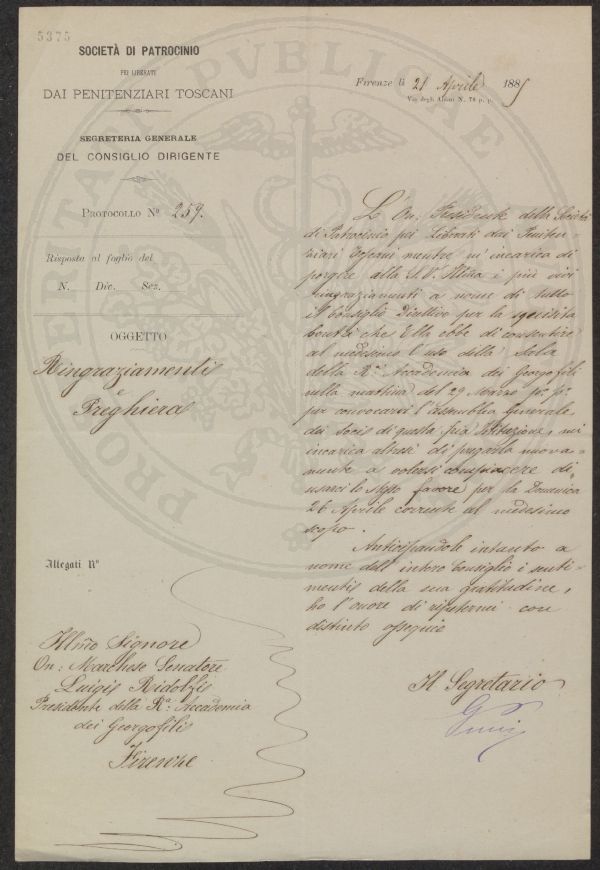 5375
SOCIETÀ DI PATROCINIO
PEI LIBERATI
DAI PENITENZIARI TOSCANI
SEGRETERIA GENERALE
DEL CONSIGLIO DIRIGENTE
PROTOCOLLO Nº 259.
Risposta al foglio del
N. Div. Sez.
OGGETTO
Ringraziamenti
e
Preghiera
Allegati Nº
Illmo Signore
On: Marchese Senatore
Luigi Ridolfi
Presidente della Rª. Accademia
dei Georgofili
Firenze
Firenze li 21 Aprile 1885
Via degli Alfani N. 78 p. p.
L'On: Presidente della Società
di Patrocinio pei Liberati dai Peniten-
ziari Toscani mentre m'incarica di
porgere alla S.V. Illma i più vivi
ringraziamenti a nome di tutto
il Consiglio Direttivo per la squisita
bontà che Ella ebbe di consentire
al medesimo l'uso della Sala
della Rª. Accademia dei Georgofili
nella mattina del 29 Marzo pº. pº.
per convocarvi l'Assemblea Generale
dei Socii di questa pia Istituzione, mi
incarica altresì di pregarla nuova-
mente a volersi compiacere di
usarci lo stesso favore per la Domenica
26 Aprile corrente al medesimo
scopo.
Anticipandole intanto a
nome dell'intero Consiglio i senti-
menti della sua gratitudine,
ho l'onore di ripetermi con
distinto ossequio
Il Segretario
PRO VERITATE PUBLICAE